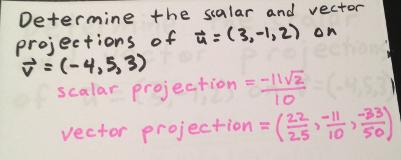 Determine the scalar and vector
projections of u⃗ = (3,-1,2) on
v⃗ = (-4,5,3)
scalar projection = -11√2/10
vector projection = (22/25, -11/10, -33/50)